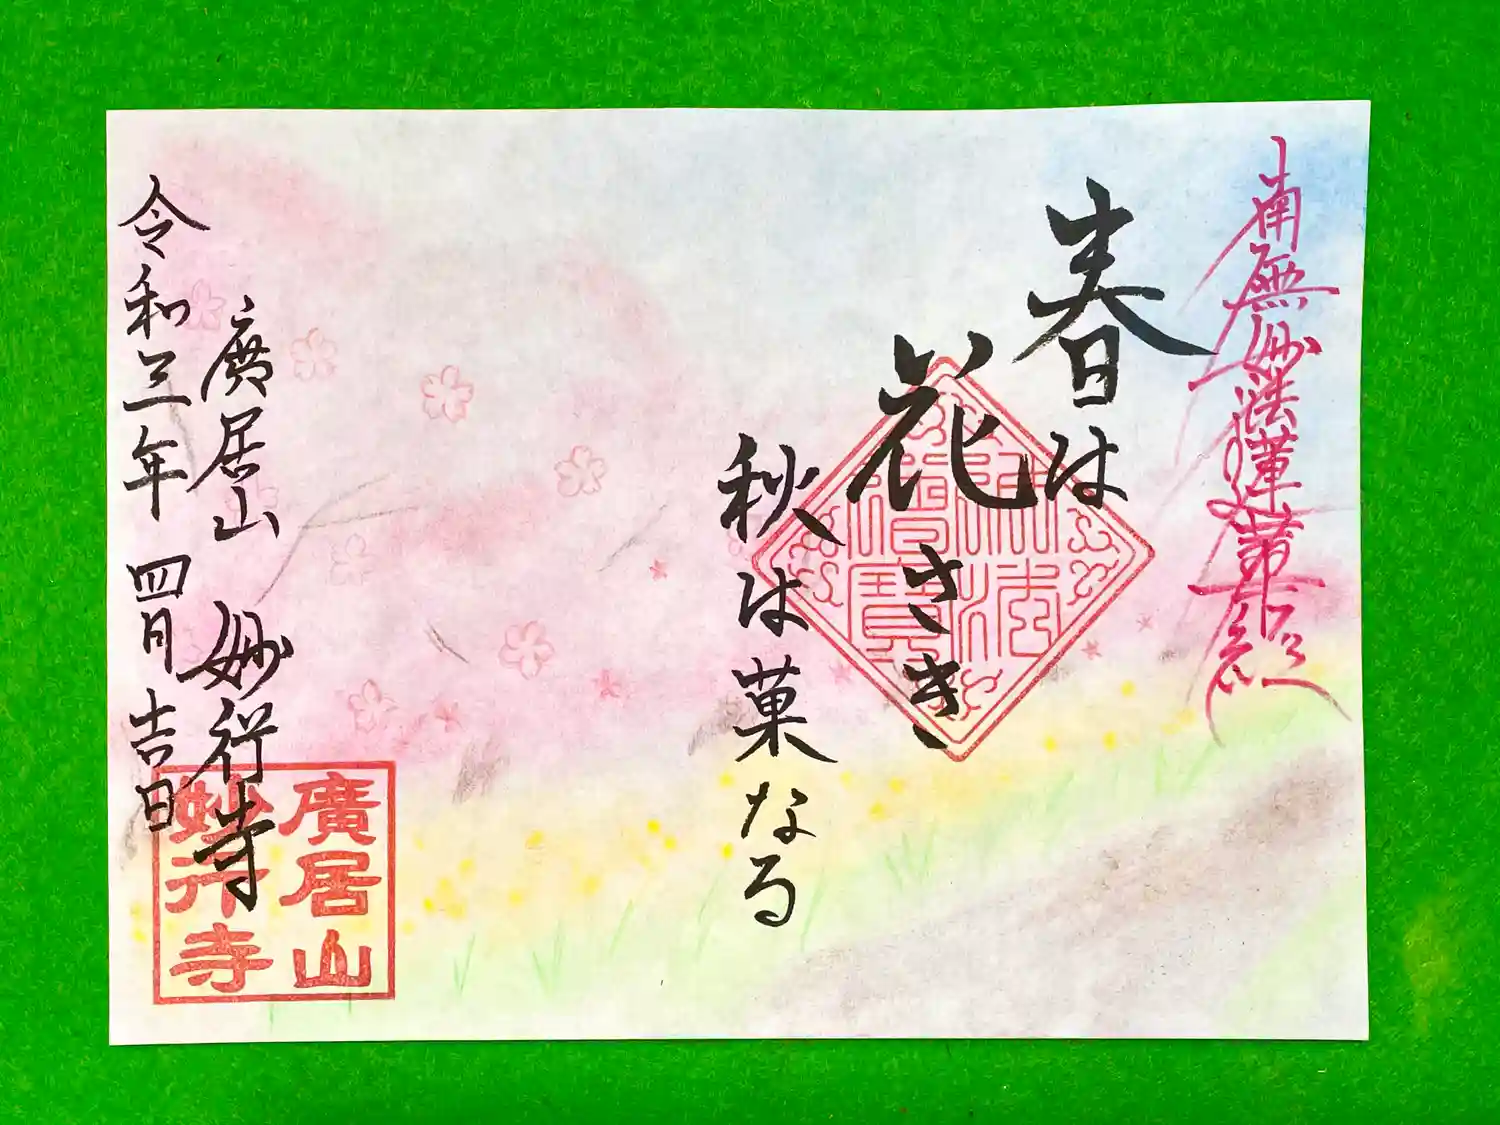 南無妙法蓮華経
春は
花さき、
秋は菓なる
廣居山 妙行寺
令和三年 四月 吉日
佛法
僧寶
廣居山
妙行寺